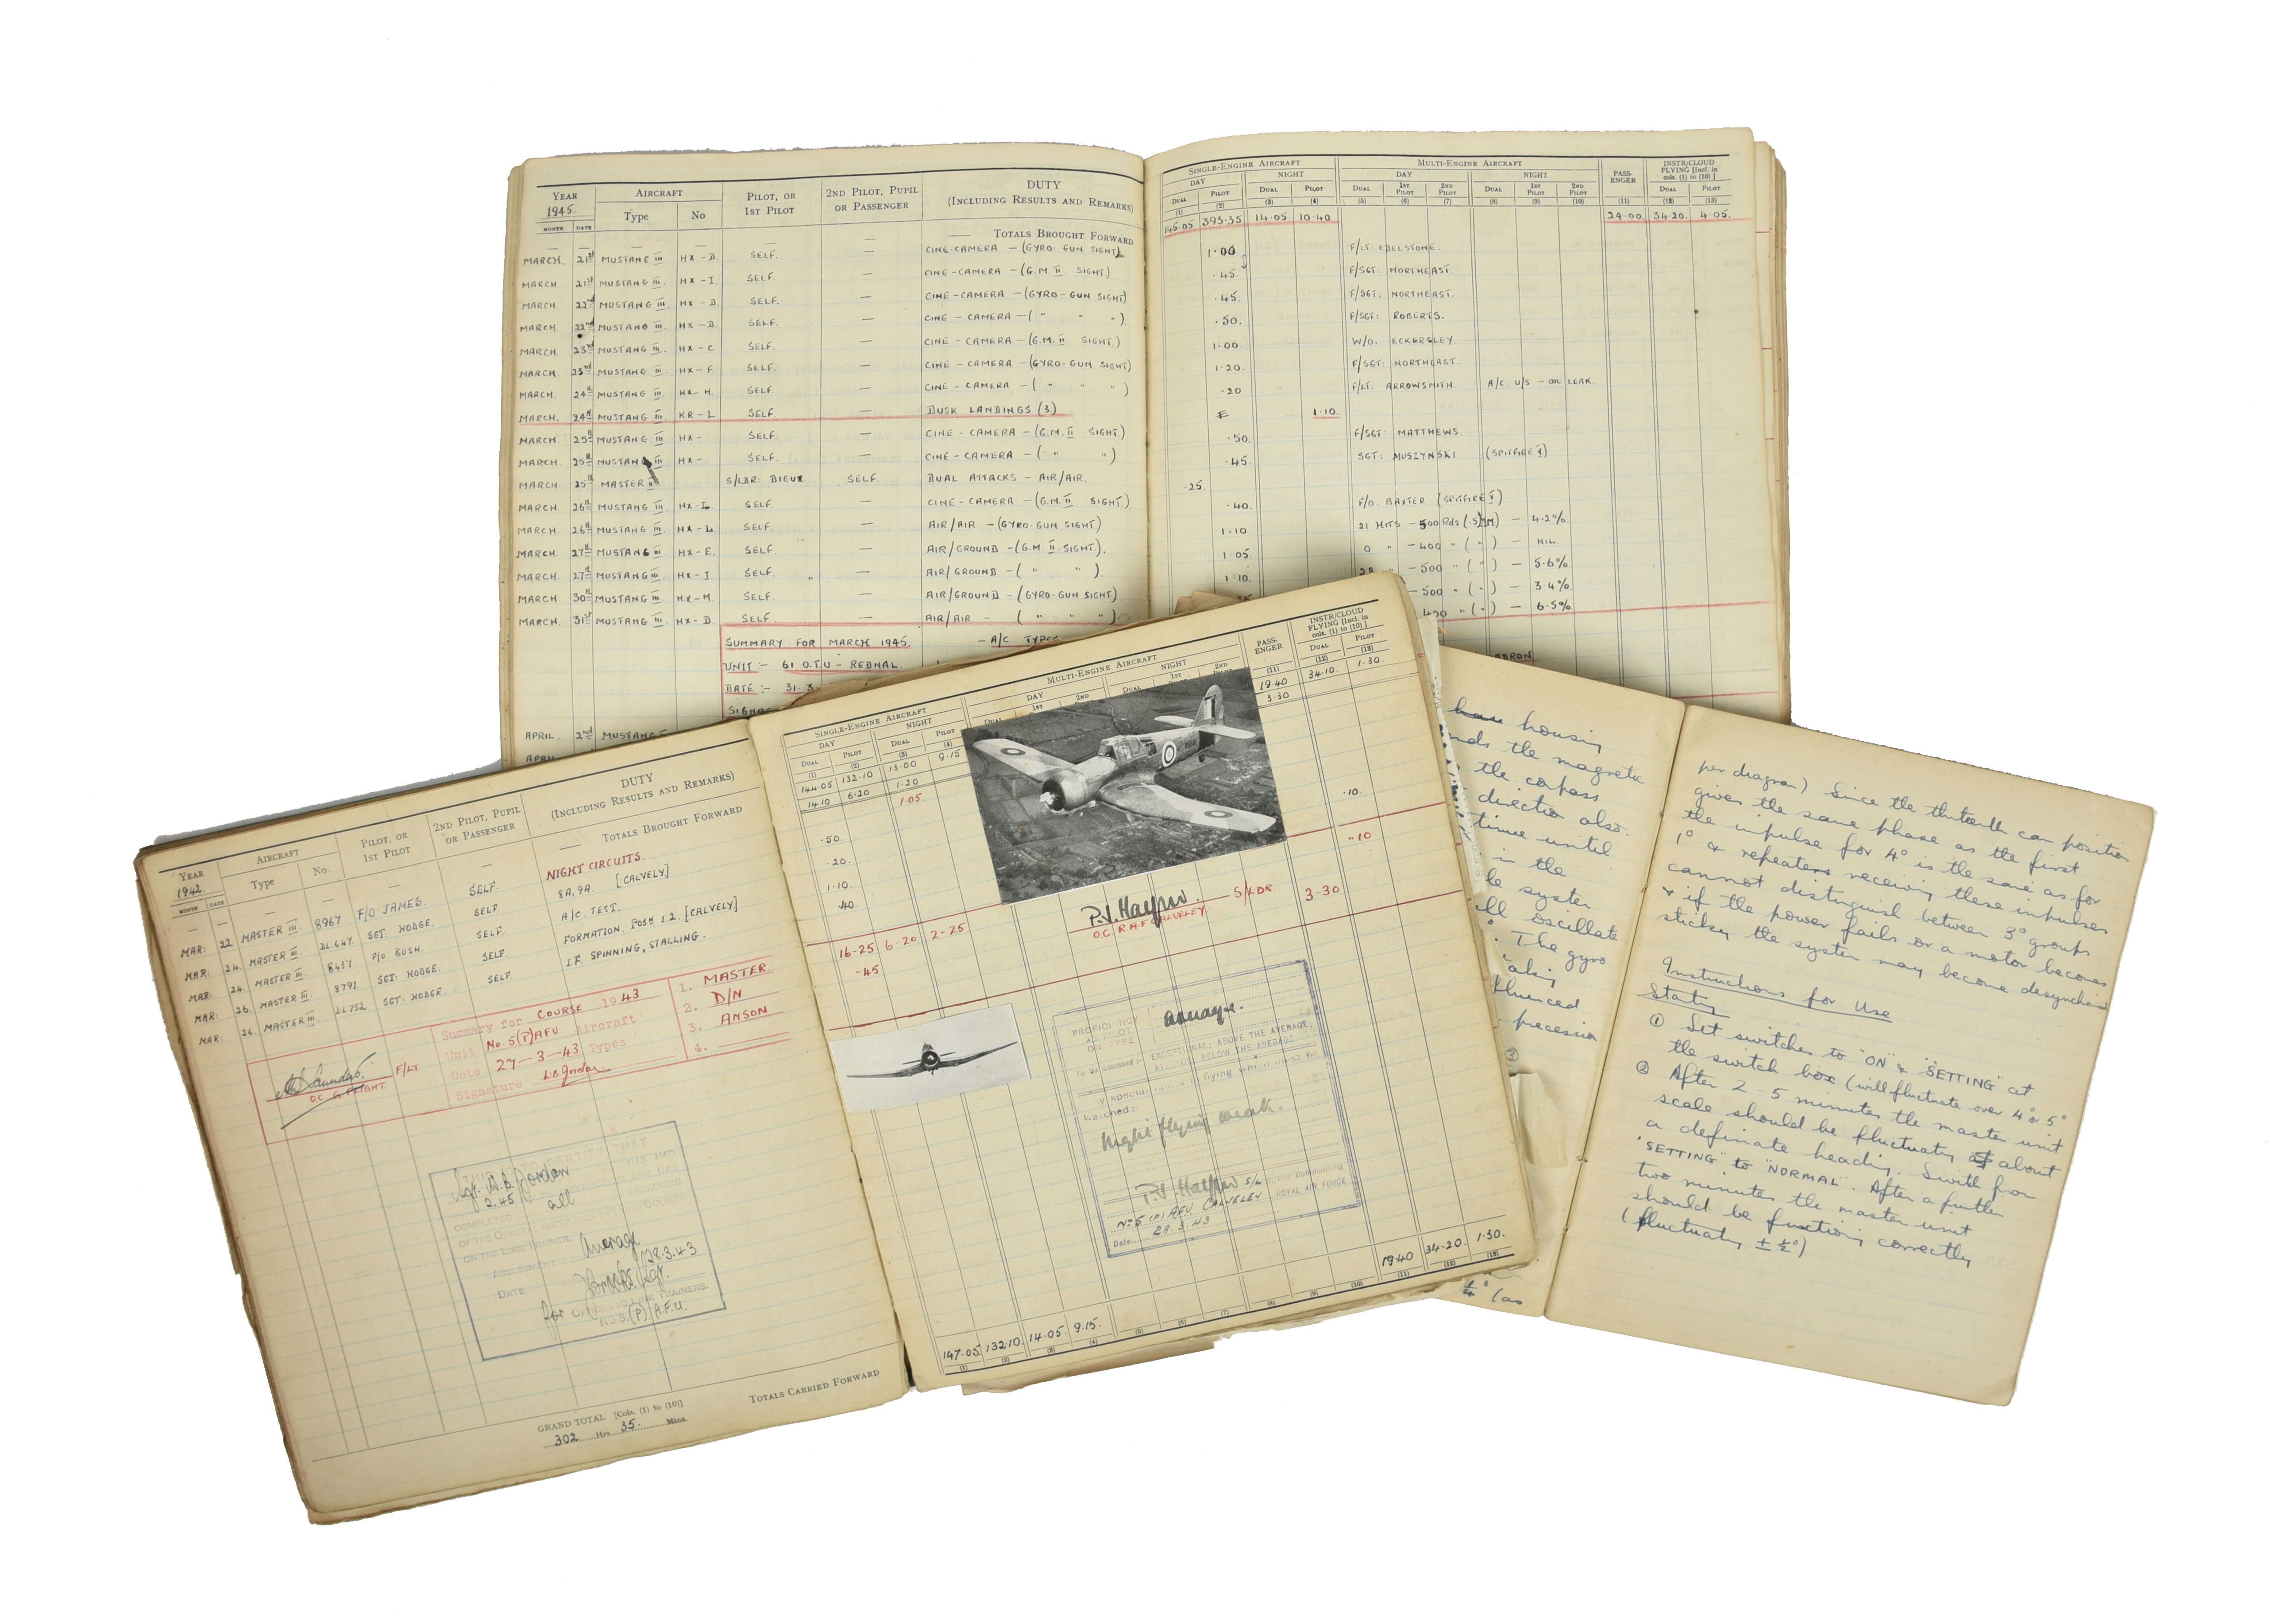 YEAR AIRCRAFT PILOT, OR 2ND PILOT, PUPIL DUTY
1945. Type No 1ST PILOT OR PASSENGER (INCLUDING RESULTS AND REMARKS)
MONTH DATE
— — — — — — TOTALS BROUGHT FORWARD
MARCH. 21st MUSTANG III HX-D. SELF. — CINE-CAMERA — (GYRO-GUN SIGHT)
MARCH 21st MUSTANG III. HX-I. SELF. — CINE-CAMERA — (G.M. II SIGHT.)
MARCH 22nd MUSTANG III. HX-D. SELF. — CINE-CAMERA — (GYRO-GUN SIGHT)
MARCH. 22nd MUSTANG III HX-D. SELF. — CINE-CAMERA — ( " " " ).
MARCH. 23rd MUSTANG III. HX-C SELF. — CINE-CAMERA — (G.M. II SIGHT.)
MARCH. 23rd MUSTANG III. HX-F. SELF. — CINE-CAMERA — (GYRO-GUN SIGHT)
MARCH 24th MUSTANG III HX-H. SELF. — CINE-CAMERA — ( " " " )
MARCH. 24th MUSTANG III KR-L SELF. — DUSK LANDINGS (3)
MARCH. 25th MUSTANG III HX- SELF. — CINE-CAMERA — (G.M. II SIGHT.)
MARCH. 25th MUSTANG III HX- SELF. — CINE-CAMERA — ( " ")
MARCH 25th MASTER II S/LDR: DIEUX SELF. DUAL ATTACKS - AIR/AIR.
MARCH 26th MUSTANG III HX-L. SELF. — CINE-CAMERA — (G.M. II SIGHT.)
MARCH. 26th MUSTANG III. HX-L. SELF. — AIR/AIR — (GYRO-GUN SIGHT.)
MARCH. 27th MUSTANG III HX-E. SELF. — AIR/GROUND — (G.M. II SIGHT.).
MARCH 27th MUSTANG III. HX-I. SELF. — AIR/GROUND — ( " " ).
MARCH 30th MUSTANG III. HX-M. SELF. — AIR/GROUND — (GYRO-GUN SIGHT)
MARCH. 31st MUSTANG III. HX-D. SELF. — AIR/AIR — ( " " " )
SUMMARY FOR MARCH 1945. — A/C TYPES
UNIT :- 61 O.T.U - REDNAL.
DATE :- 31.3
APRIL. 2nd MUSTANG
SINGLE-ENGINE AIRCRAFT MULTI-ENGINE AIRCRAFT PASS-ENGER INSTR/CLOUD FLYING [Incl. in cols. (1) to (10)]
DAY NIGHT DAY NIGHT
DUAL PILOT DUAL PILOT DUAL 1ST PILOT 2ND PILOT DUAL 1ST PILOT 2ND PILOT DUAL PILOT
(1) (2) (3) (4) (5) (6) (7) (8) (9) (10) (11) (12) (13)
145.05 393.35 14.05 10.40 24.00 34.20. 4.05.
1.00 F/LT: EDELSTONE.
.45. F/SGT: NORTHEAST.
.45. F/SGT: NORTHEAST.
.50. F/SGT: ROBERTS.
1.00. W/O. ECKERSLEY.
1.20. F/SGT: NORTHEAST.
.20 F/LT: ARROWSMITH. A/C. U/S - OIL LEAK.
1.10.
.50. F/SGT: MATTHEWS.
.45 SGT: MUSZYNSKI (SPITFIRE V)
.25.
.40. F/O. BAXTER (SPITFIRE V)
1.10 21 HITS - 500 Rds - 4.2%.
1.05. 0 " - 400 " ( " ) - NIL.
1.10. 28 - 500 " ( " ) - 5.6%
- 500 " ( " ) - 3.4%
400 " ( " ) - 6.5%
YEAR AIRCRAFT PILOT, OR 2ND PILOT, PUPIL DUTY
1942 Type No. 1ST PILOT OR PASSENGER (INCLUDING RESULTS AND REMARKS)
MONTH DATE
— — — — — — TOTALS BROUGHT FORWARD
MAR: 22. MASTER III 8967 F/O JAMES. SELF. NIGHT CIRCUITS.
MAR: 24. MASTER III. DL647. SGT: HODGE. SELF. 8A.9A. [CALVELY]
MAR: 24. MASTER III 8437 F/O BUSH. SELF. A/C. TEST.
MAR: 26. MASTER III. 8791. SGT: HODGE. SELF. FORMATION. POSN 1.2. [CALVELY]
MAR: 26. MASTER III DL752 SGT: HODGE. SELF. I.F. SPINNING, STALLING.
Summary for COURSE 1943 1. MASTER
Unit No. 5(P)AFU Aircraft 2. D/N
Date 27-3-43 Types 3. ANSON
Signature 4.
Saunders. F/LT.
O.C. G. FLIGHT
THIS IS TO CERTIFY THAT
Sgt. Jordan HAS HAD
2.45
all EXERCISES
COMPLETED
ON THE LINK TRAINER COURSE
ASSESSMENT Average
DATE 28.3.43
for OFFICER I/C LINK TRAINERS.
No 5. (P) A.F.U.
GRAND TOTAL [Cols. (1) to (10)]
302 Hrs. 35. Mins.
TOTALS CARRIED FORWARD
SINGLE-ENGINE AIRCRAFT MULTI-ENGINE AIRCRAFT PASS-ENGER INSTR/CLOUD FLYING [Incl. in cols. (1) to (10)]
DAY NIGHT DAY NIGHT
DUAL PILOT DUAL PILOT DUAL 1ST 2ND DUAL 1ST 2ND DUAL PILOT
(1) (2) (3) (4) (11) (12) (13)
144.05 132.10 13.00 9.15 19.40 34.10. 1.30.
14.10 6.20 1.20 3.30
1.05.
.50. .10.
.20.
1.10
.40
16-25 6-20 2-25 S/LDR 3-30 .10
O.C. R.A.F. CALVELEY
.45
PROFICIENCY AS PILOT ON TYPE Average.
To be assessed :- EXCEPTIONAL; ABOVE THE AVERAGE;
OR BELOW THE AVERAGE
Night flying weak.
S/L Officer Commanding
No 5 (P) AFU CALVELEY ROYAL AIR FORCE
Date 28.3.43
147.05 132.10. 14.05. 9.15. 19.40 34.20. 1.30.
(1) (2) (3) (4) (5) (6) (7) (8) (9) (10) (11) (12) (13)
housing
the magnetic
the compass
direction also.
until
in the
system
oscillate
. The gyro
precession
(as
per diagram) Since the thirteenth can position
gives the same phase as the first
the impulse for 4° is the same as for
1° & repeaters receiving these impulses
cannot distinguish between 3° groups
& if the power fails or a motor becomes
sticky the system may become desynchronised
Instructions for Use
Starting
① Set switches to "ON" & "SETTING" at
the switch box (will fluctuate over 4° or 5°
② After 2 - 5 minutes the master unit
scale should be fluctuating at about
a definate heading. Swith from
"SETTING" to "NORMAL". After a further
two minutes the master unit
should be functioning correctly
(fluctuating ± ½°)